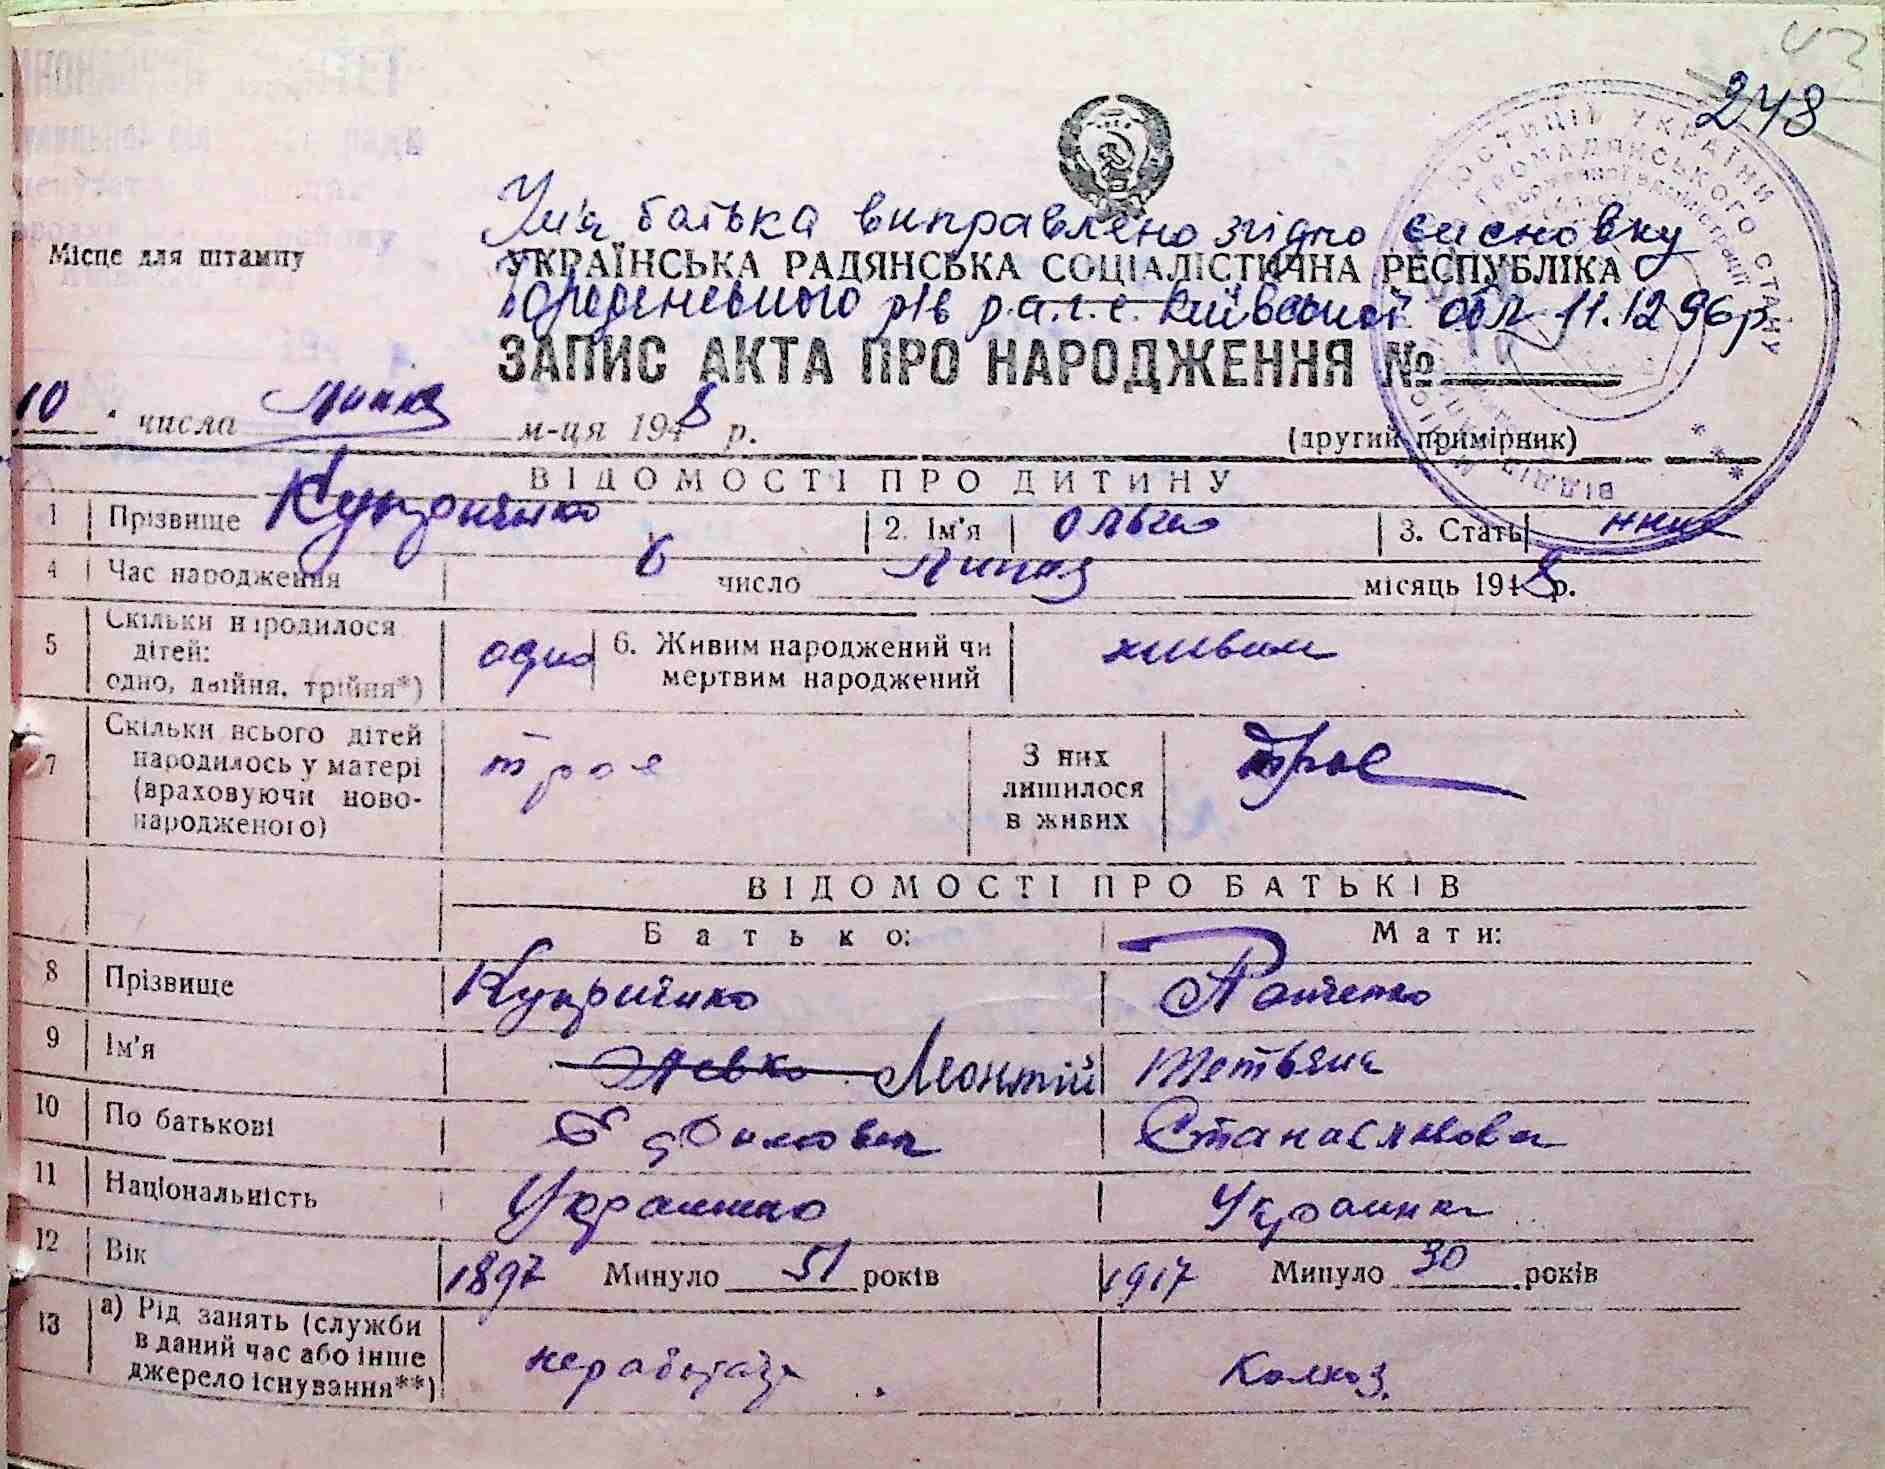 248
Ім'я батька виправлено згідно висновку
Місце для штампу
УКРАЇНСЬКА РАДЯНСЬКА СОЦІАЛІСТИЧНА РЕСПУБЛІКА
р.а.г.с. Київської обл 11.12.96р.
ЗАПИС АКТА ПРО НАРОДЖЕННЯ №
10 числа липня м-ця 1948 р.
(другий примірник)
ВІДОМОСТІ ПРО ДИТИНУ
1 Прізвище Купрієнко 2. Ім'я Ольга 3. Стать жін
4 Час народження 6 число липня місяць 1948 р.
5 Скільки народилося дітей: одно, двійня, трійня*) одно 6. Живим народжений чи мертвим народжений живим
7 Скільки всього дітей народилось у матері (враховуючи ново-народженого) троє З них лишилося в живих троє
ВІДОМОСТІ ПРО БАТЬКІВ
Батько: Мати:
8 Прізвище Купрієнко Панченко
9 Ім'я Левко Леонтій Тетьяна
10 По батькові Станиславовна
11 Національність Украинка
12 Вік 1897 Минуло 51 років 1917 Минуло 30 років
13 а) Рід занять (служби в даний час або інше джерело існування**) Колхоз.